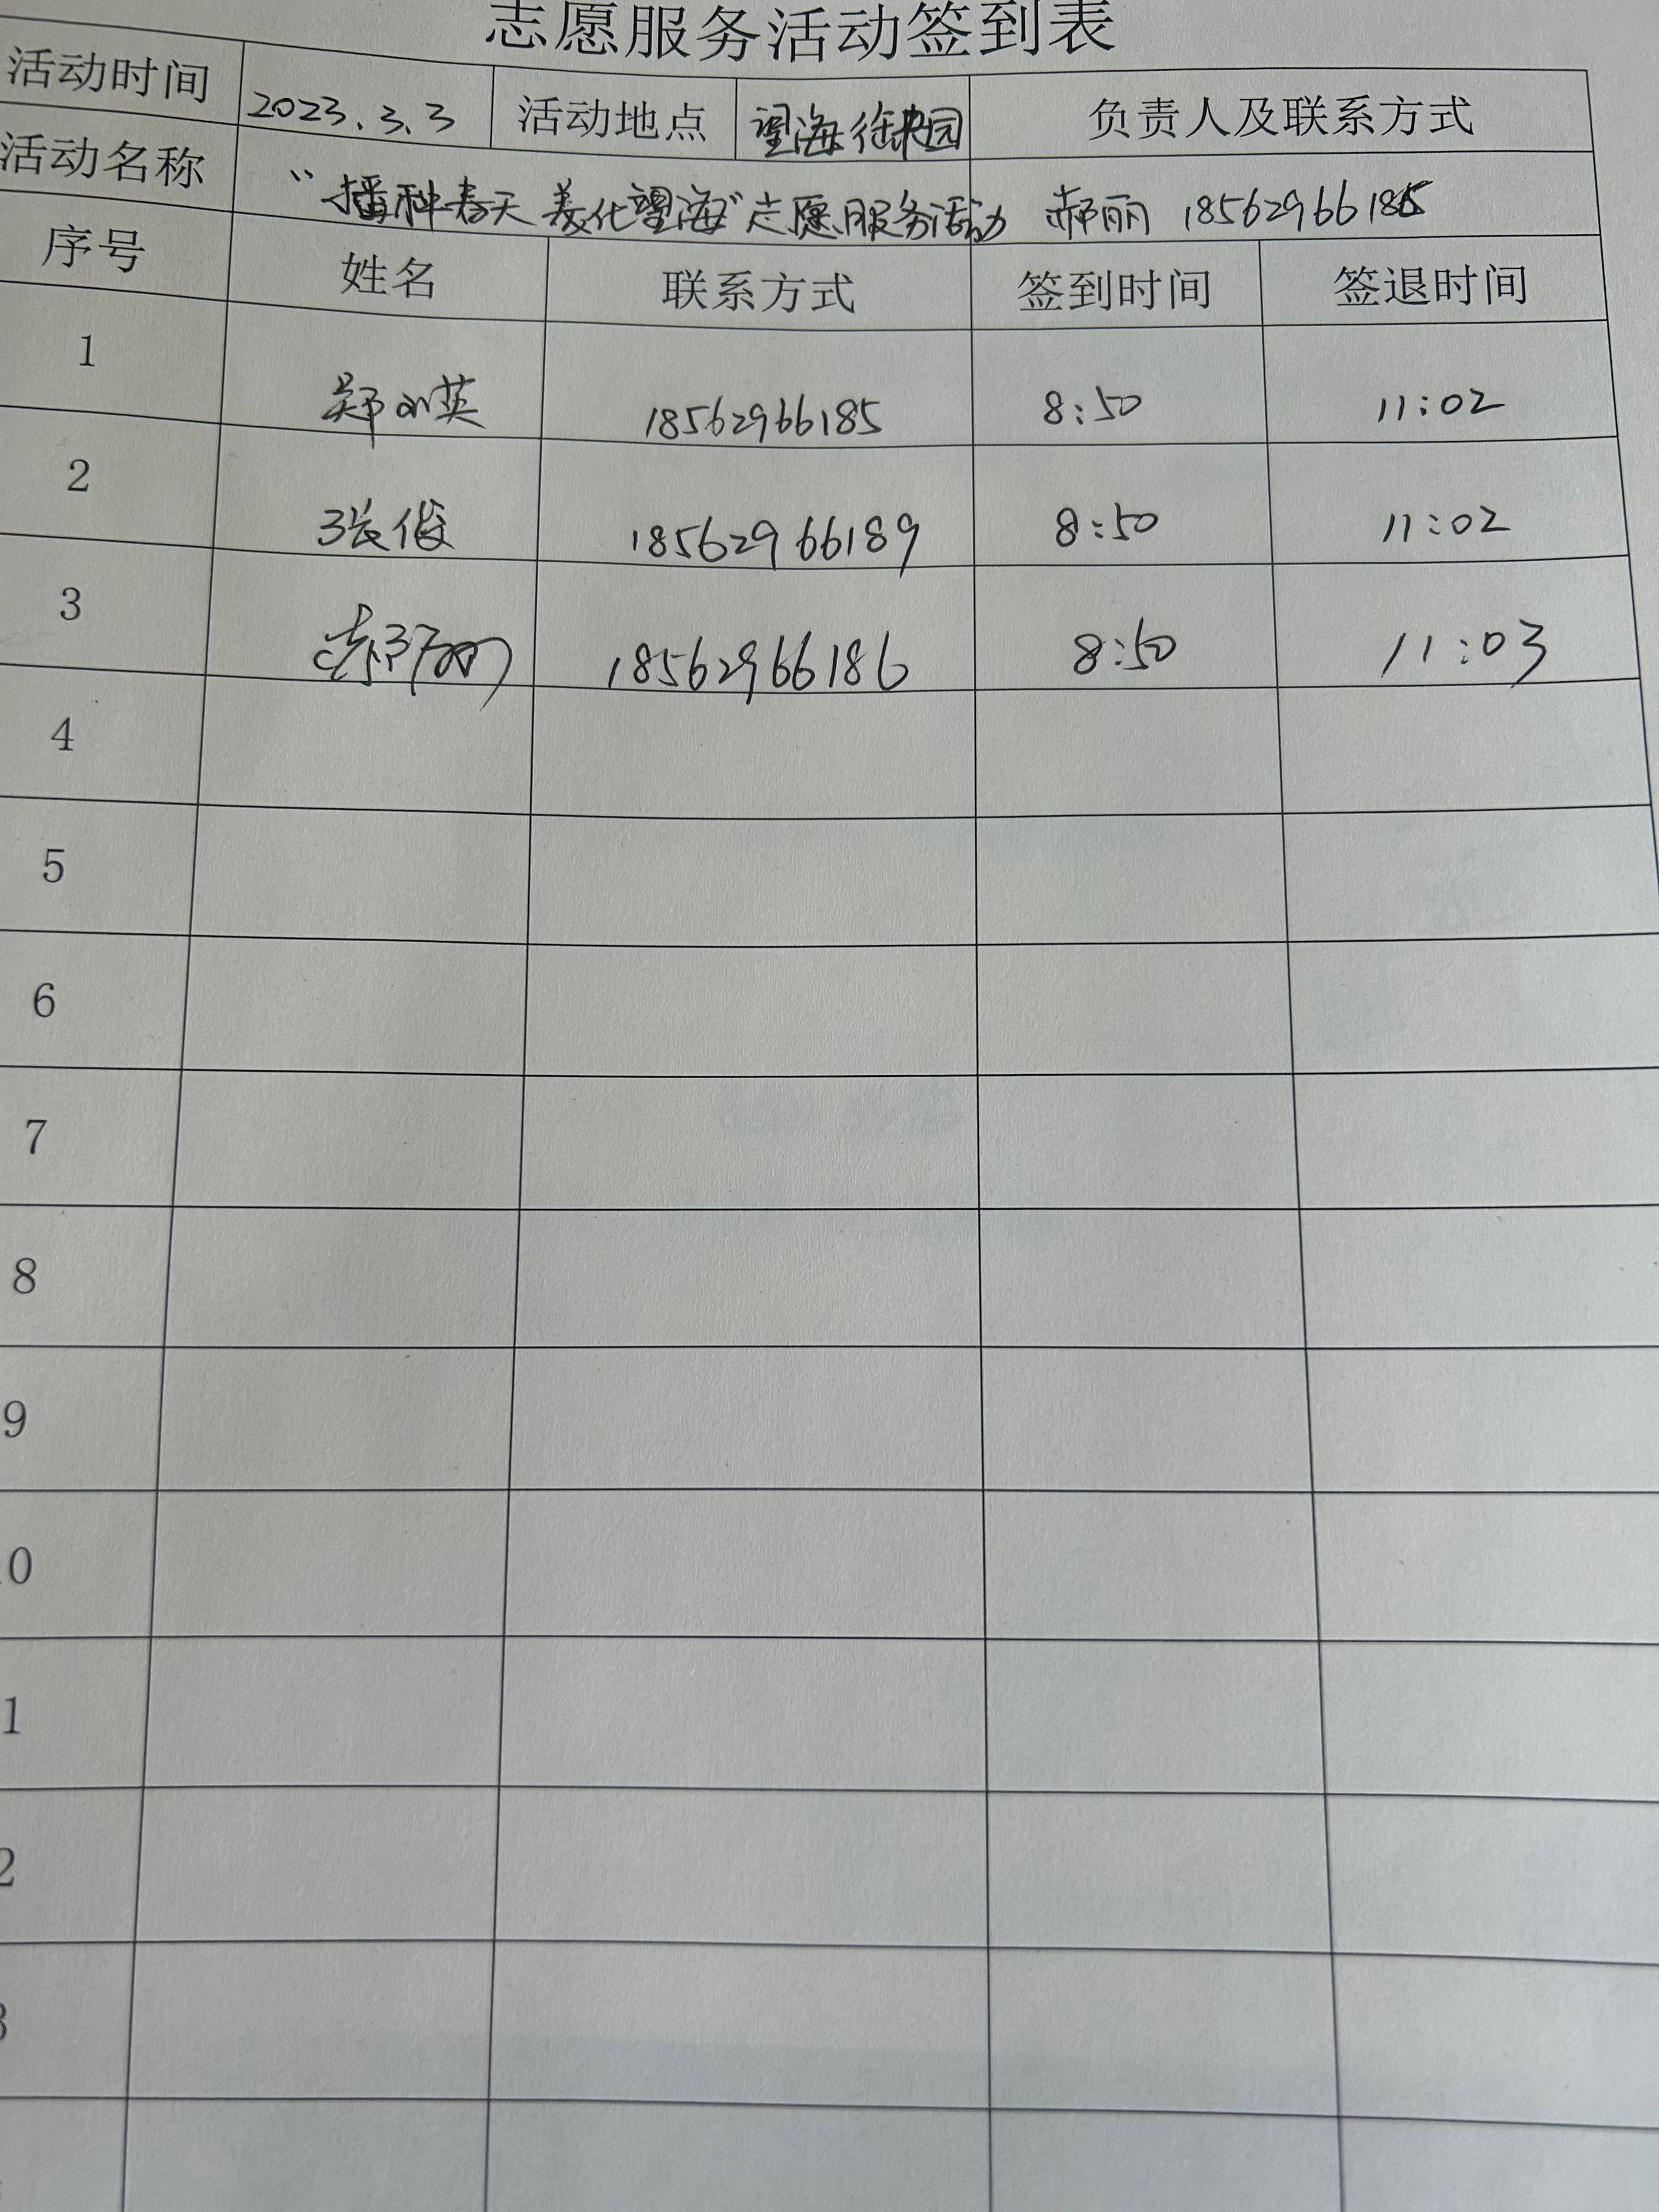 志愿服务活动签到表
活动时间 2023.3.3 活动地点 望海 园 负责人及联系方式
活动名称 “播种春天 美化望海”志愿服务活动 郝丽 1856296618
序号 姓名 联系方式 签到时间 签退时间
1 郑 英 18562966185 8:50 11:02
2 张俊 18562966189 8:50 11:02
3 郝丽 18562966186 8:50 11:03
4
5
6
7
8
9
0
1
2
3